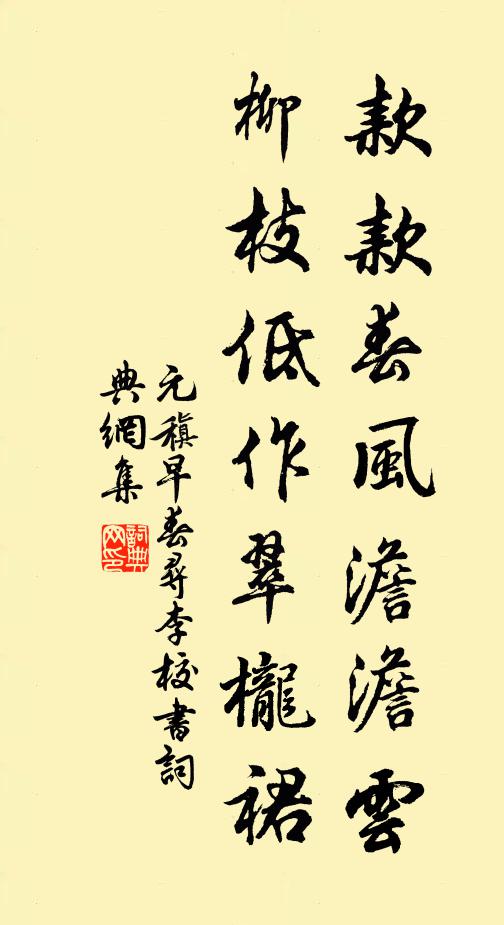 款款春風澹澹雲
柳枝低作翠櫳裙
元稹早春尋李校書詞
典網集
詞典
网印